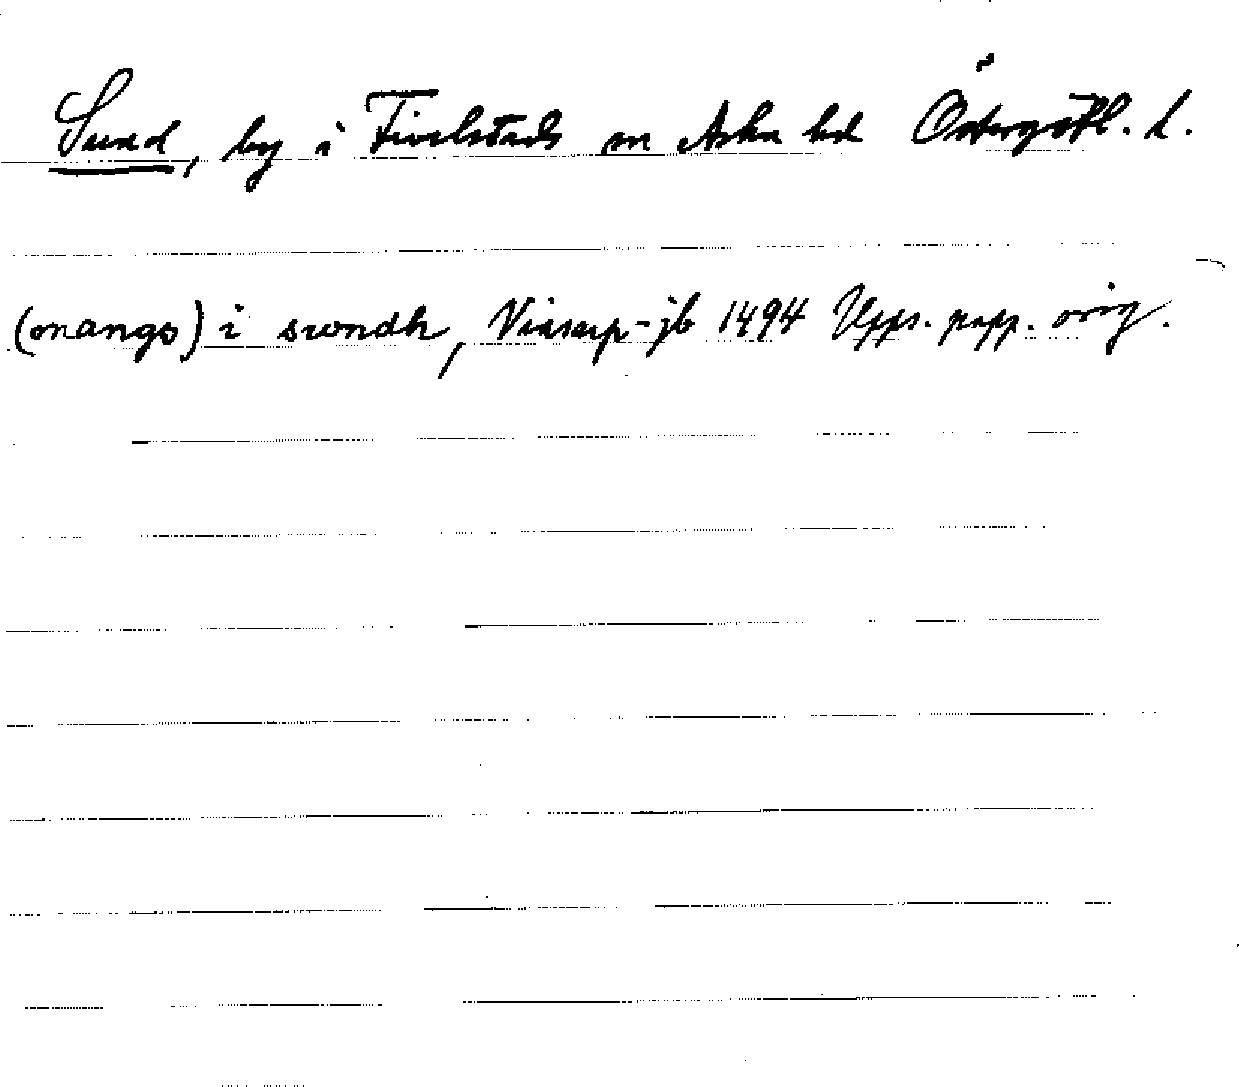 Sund, by i Fivelstads sn Aska hd Östergötl. l.
(mangs) i swndh, Vinsarp-jb 1494 Upps. papp. orig.